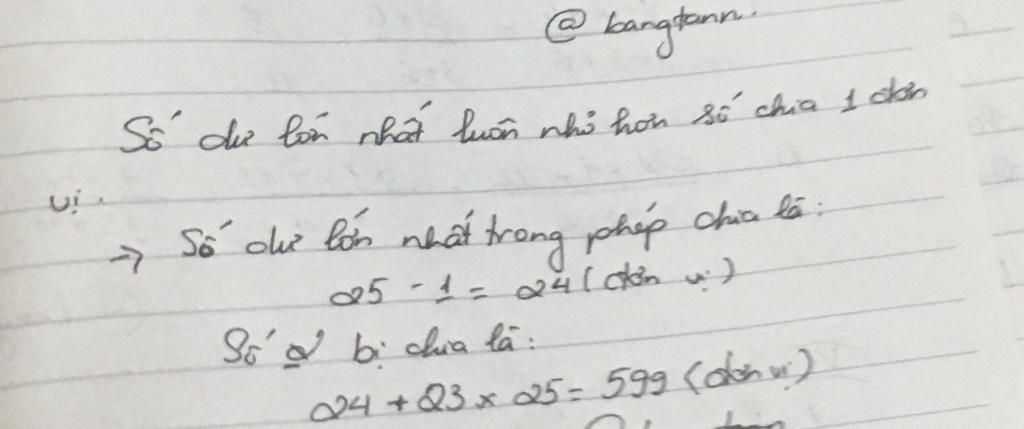 @ bangtann.
Số dư lớn nhất luôn nhỏ hơn số chia 1 đơn
vị.
=> Số dư lớn nhất trong phép chia là:
25 - 1 = 24 (đơn vị)
Số bị chia là:
24 + 23 x 25 = 599 (đơn vị)